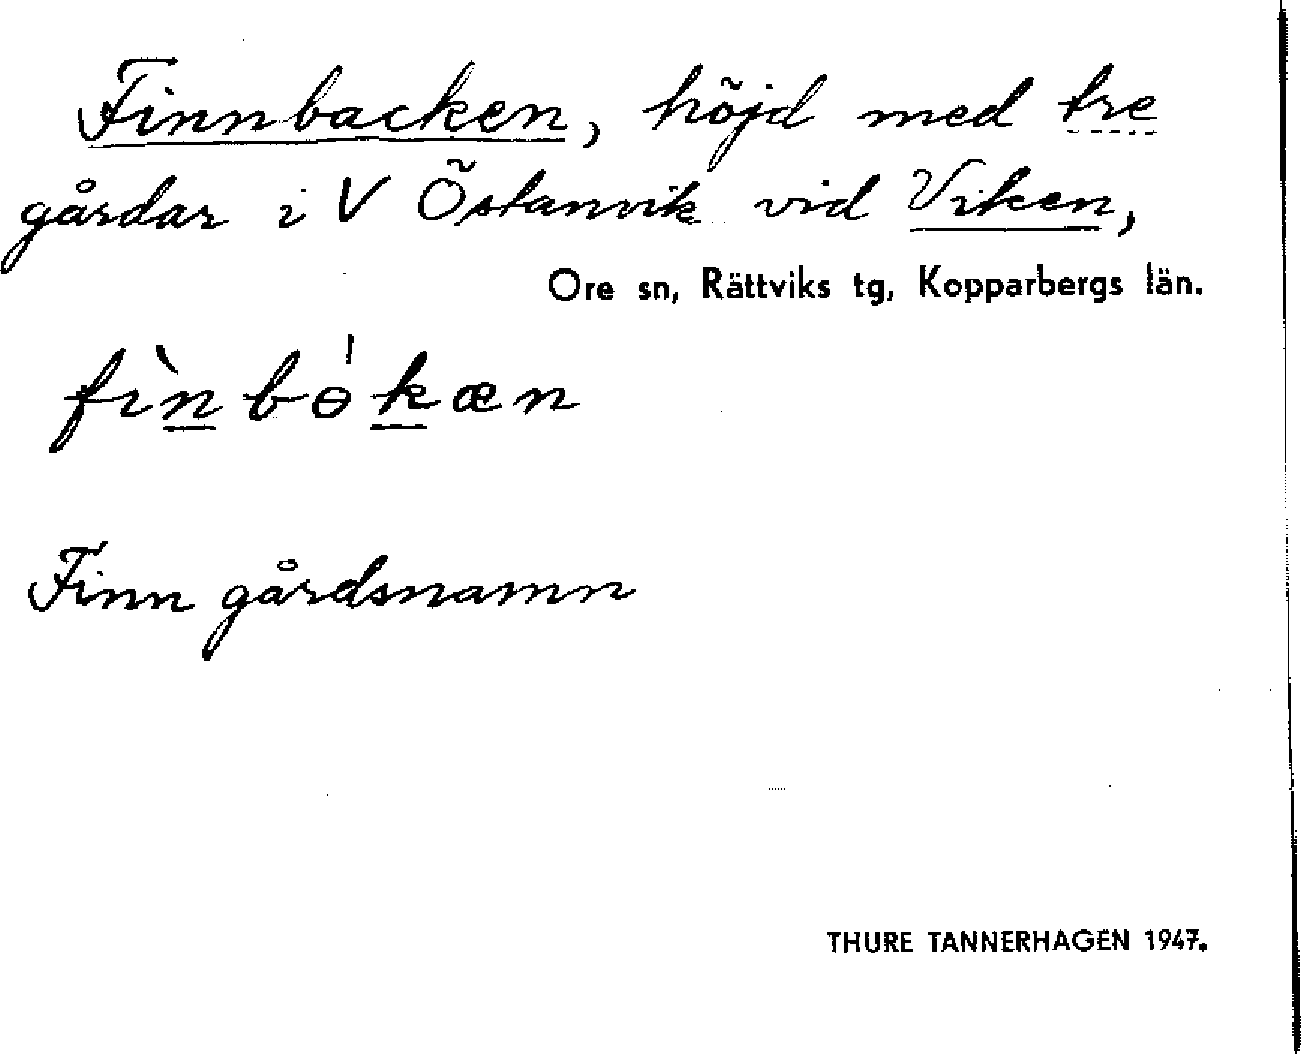 Finnbacken, höjd med tre
gårdar i V Östanvik vid Viken,
Ore sn, Rättviks tg, Kopparbergs län.
fìn bɵ́kæn
Finn gårdsnamn
THURE TANNERHAGEN 1947.